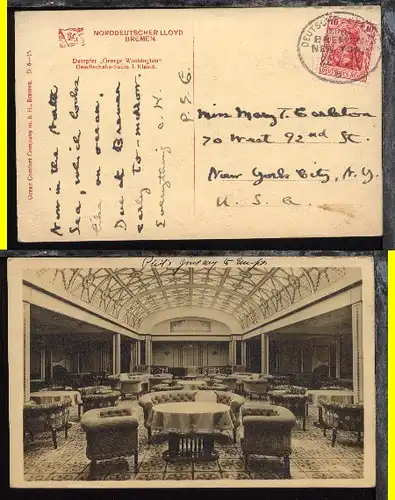 NORDDEUTSCHER LLOYD
BREMEN.
Dampfer „George Washington"
Gesellschafts-Salon I. Klasse.
Ocean Comfort Company m. b. H., Bremen. D. 6-15.
Am in the North
Sea, which looks
like an ocean.
Due at Bremen
early to-morrow.
Everything O.K.
P.S.C.
DEUTSCHE
BREMEN
NEW YORK
Miss Mary T. Carleton
70 West 92nd St.
New York City, N.Y.
U. S. A.